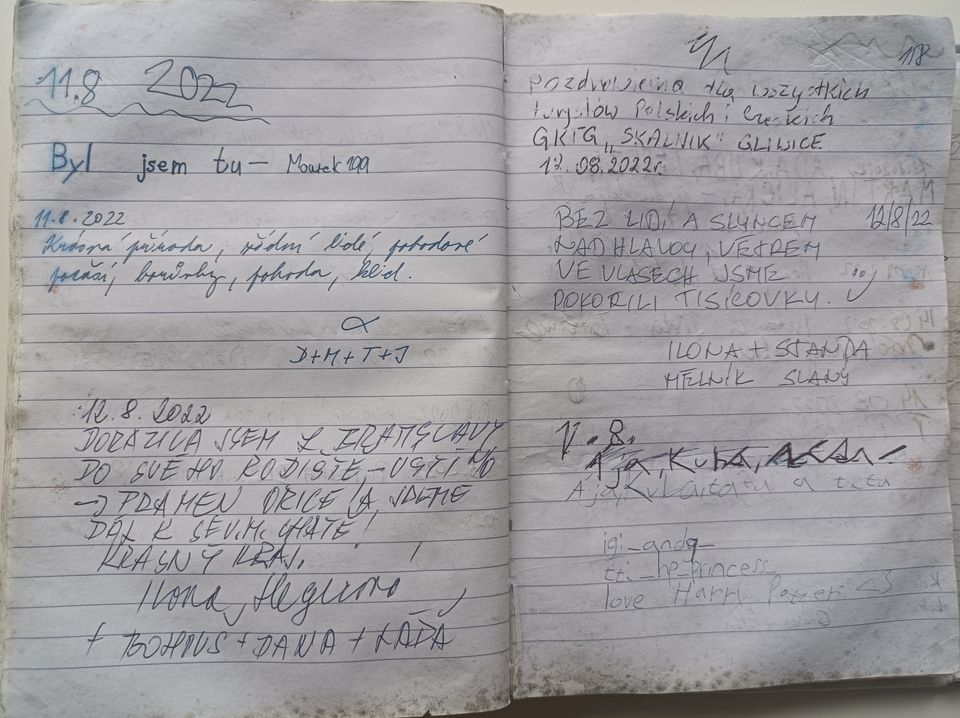 11.8 2022
Byl jsem tu – Mourek 199
11.8.2022
Krásná příroda, vřídní lidé, pohodové
počasí, borůvky, pohoda, klid.
D+M+T+J
12.8.2022
DORAZILA JSEM Z BRATISLAVY
DO SVÉHO RODIŠTĚ – ÚSTÍ N/O
→ PRAMEN ORLICE A JDEME
DÁL K CHATĚ!
KRÁSNÝ KRAJ.
Ilona
+ BOHOUŠ + DANA + LAĎA
11.8
Pozdrowienia dla wszystkich
turystów Polskich i Czeskich
GKTG „SKALNIK" GLIWICE
12.08.2022r.
BEZ LIDÍ A SLUNCEM 12/8/22
NAD HLAVOU, VĚTREM
VE VLASECH JSME
POKOŘILI TISÍCOVKY.
ILONA + STANDA
MĚLNÍK SLANÝ
12. 8.
Ája, Kuba,
Ája, Kuba, táta a teta
ig: _andq_
tt: _hp_princess_
love Harry Potter <3